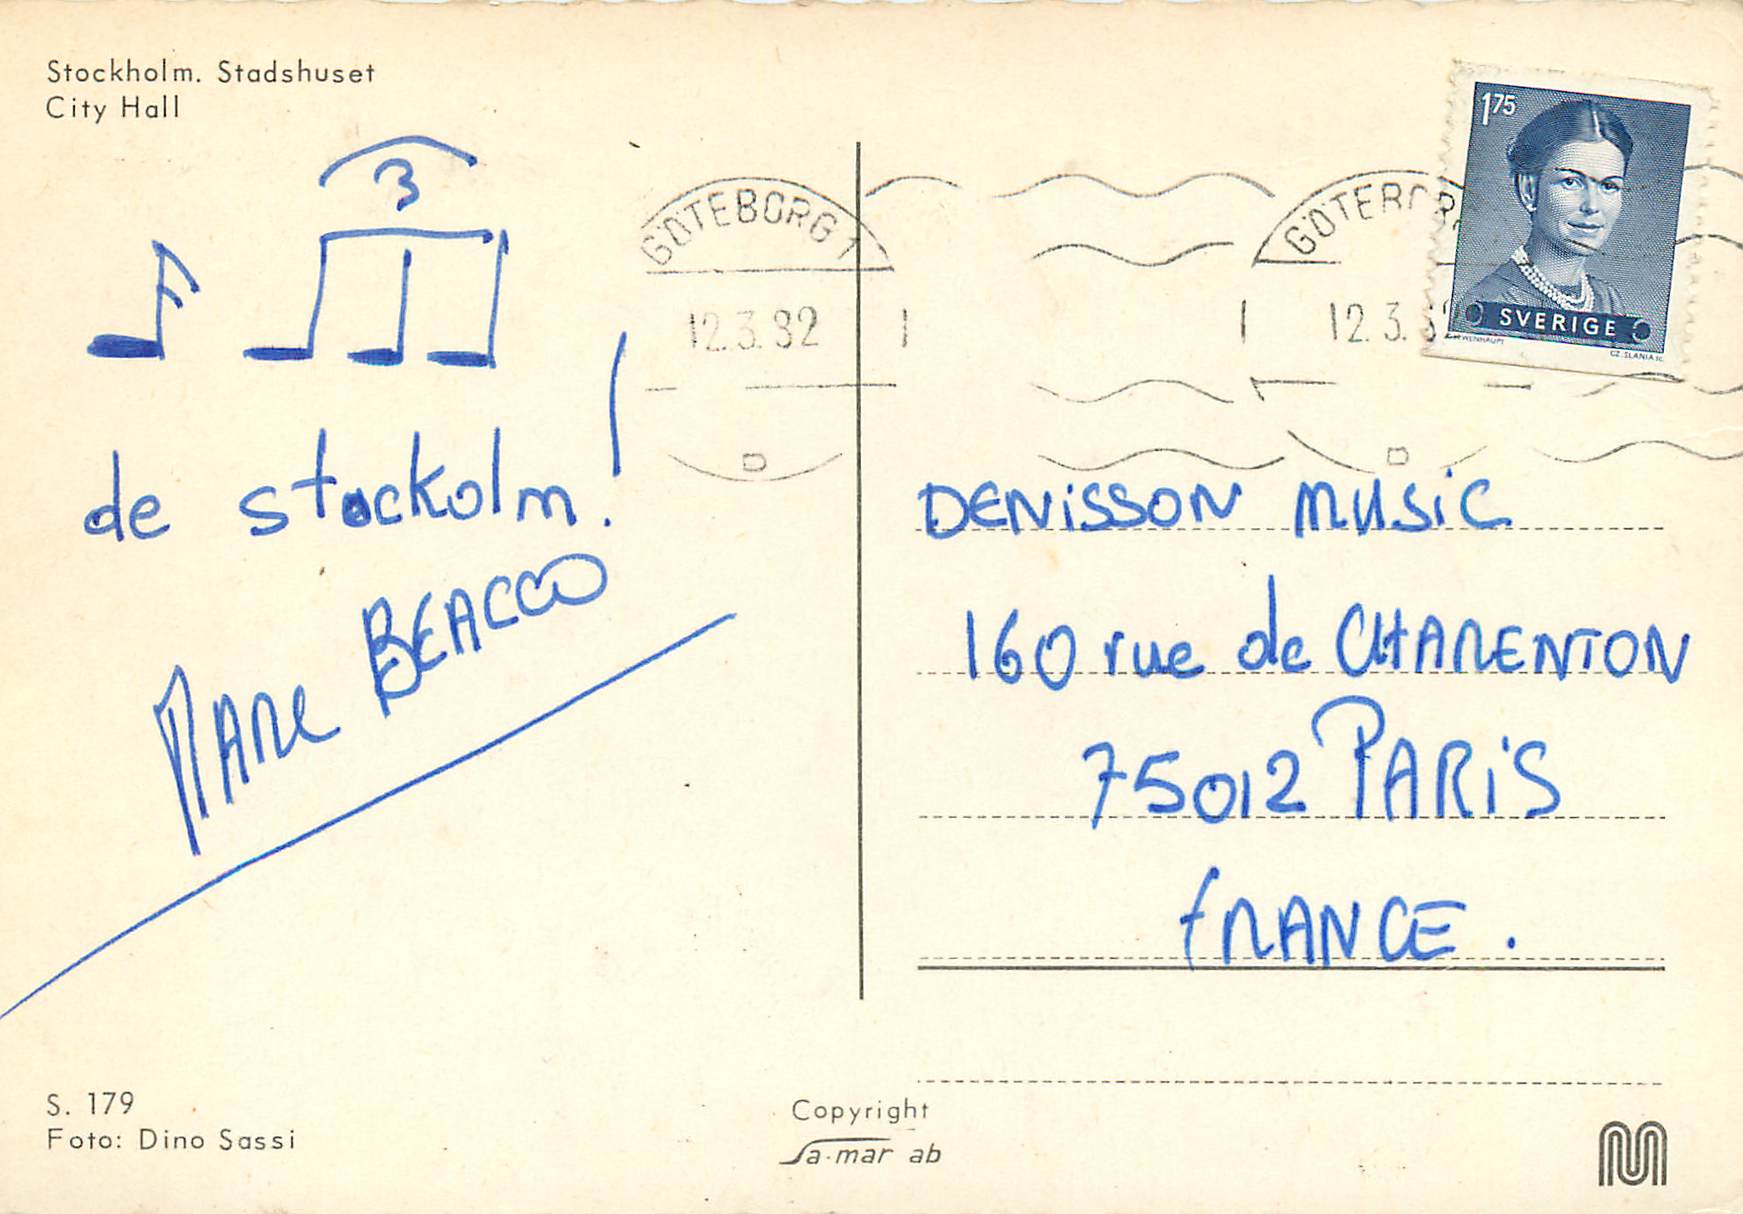 Stockholm. Stadshuset
City Hall
3
de stockolm!
MARC BEACCO
GÖTEBORG 1
12.3.82
1
D
1
12.3.
D
175
SVERIGE
CZ.SLANIA SC.
DENiSSON MUSiC
160 rue de CHARENTON
75012 PARiS
FRANCE.
S. 179
Foto: Dino Sassi
Copyright
Sa-mar ab